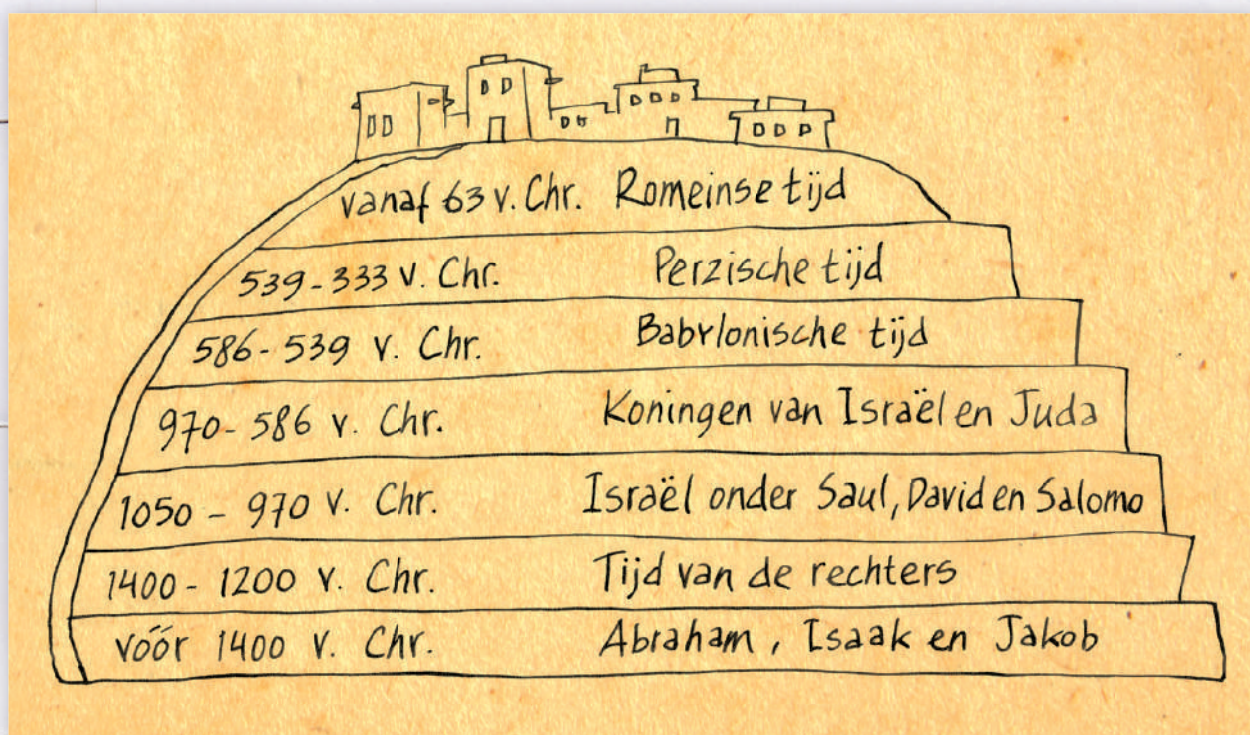 vanaf 63 v. Chr. Romeinse tijd
539-333 v. Chr. Perzische tijd
586-539 v. Chr. Babylonische tijd
970-586 v. Chr. Koningen van Israël en Juda
1050-970 v. Chr. Israël onder Saul, David en Salomo
1400-1200 v. Chr. Tijd van de rechters
vóór 1400 v. Chr. Abraham, Isaak en Jakob